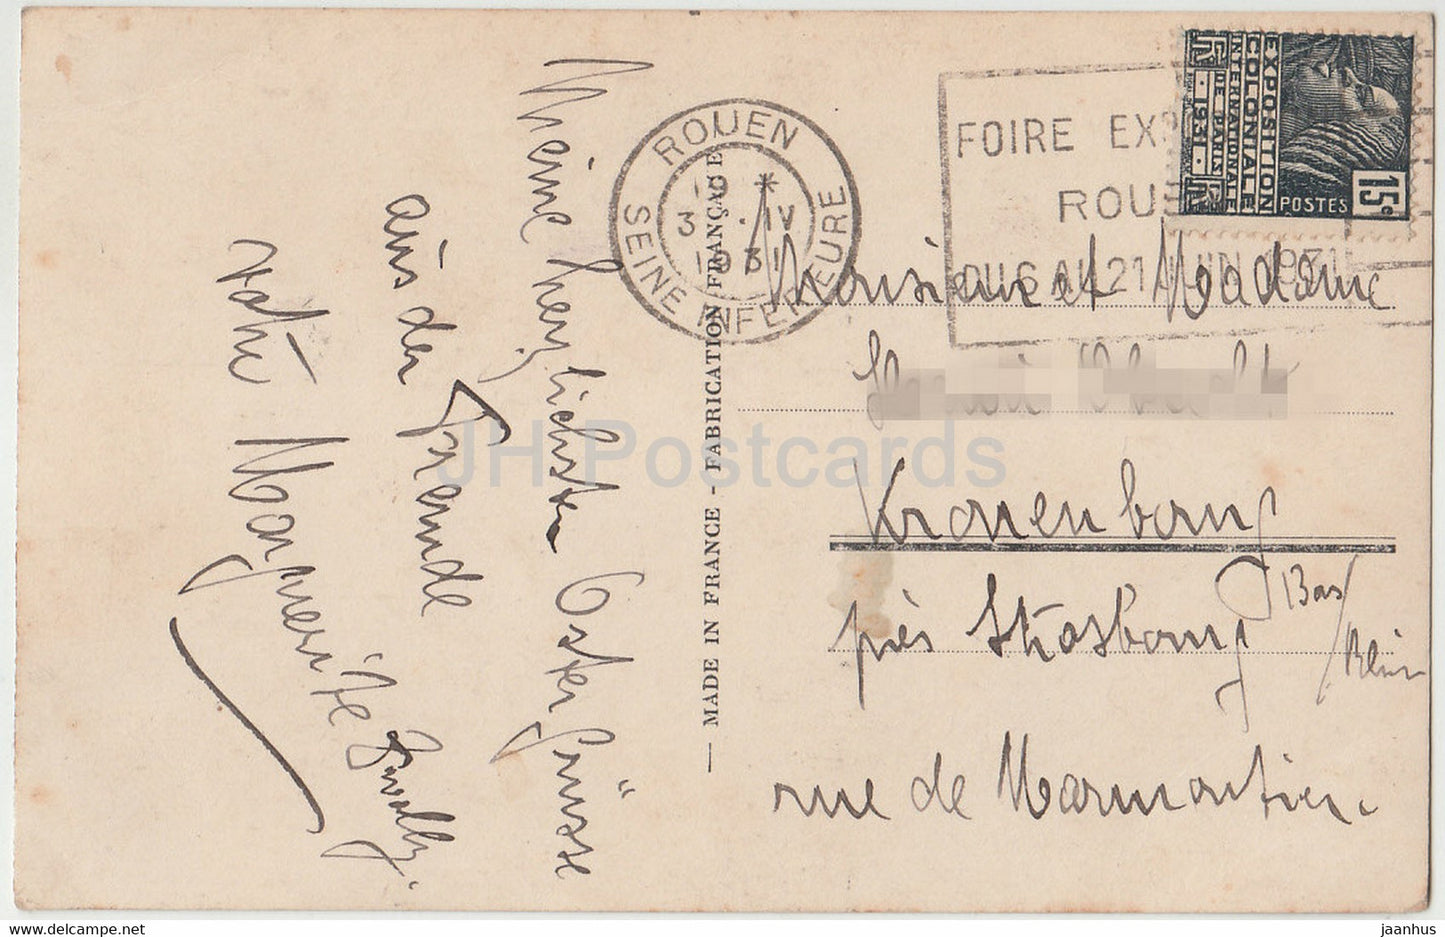 Meine herzlichsten Ostergrüsse
aus der Fremde
votre Marguerite
MADE IN FRANCE - FABRICATION FRANÇAISE
ROUEN
19 *
3 · IV
1931
SEINE INFERIEURE
FOIRE EXP
ROUEN
DU 6 AU 21 JUIN 1931
EXPOSITION
COLONIALE
INTERNATIONALE
DE PARIS
RF · 1931 · RF
POSTES
15c
Monsieur et Madame
Kronenbourg
près Strasbourg
Bas/Rhin
rue de Marmoutier.
JH Postcards
jaanhus